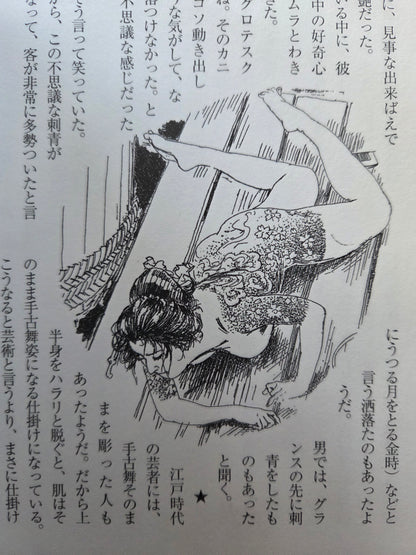 に、見事な出来ばえで
艶だった。
いる中に、彼
中の好奇心
ムラとわき
きた。
グロテスク
ね。そのカニ
コソ動き出し
うな気がして、な
落つけなかった。と
不思議な感じだった
う言って笑っていた。
から、この不思議な刺青が
なって、客が非常に多勢ついたと言
にうつる月をとる金時）などと
言う洒落たのもあったよ
うだ。
男では、グラ
ンスの先に刺
青をしたも
のもあった
と聞く。
★
江戸時代
の芸者には、
手古舞そのま
まを彫った人も
あったようだ。だから上
半身をハラリと脱ぐと、肌はそ
のまま手古舞姿になる仕掛けになっている。
こうなると芸術と言うより、まさに仕掛け